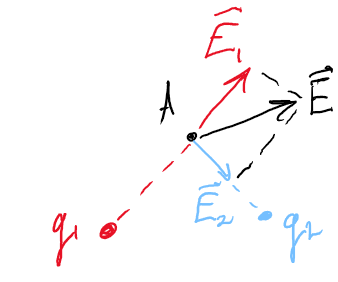 E⃗₁
A
E⃗
E⃗₂
q₁
q₂